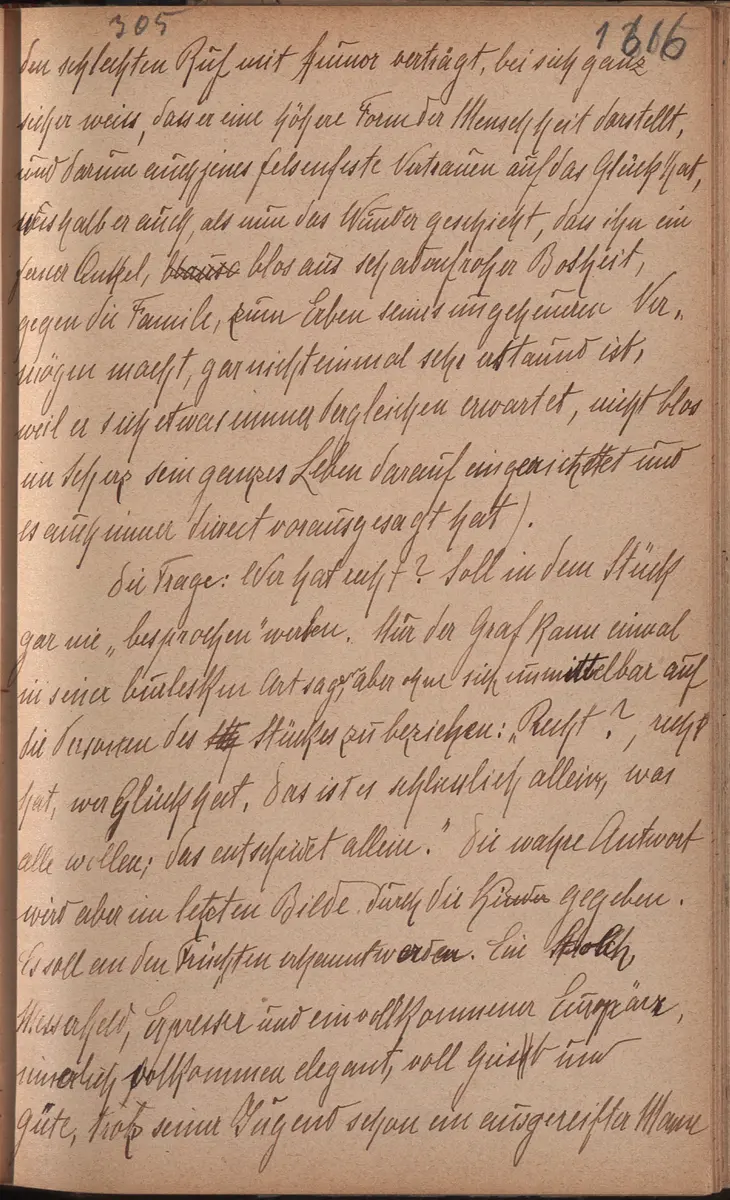 305
1616
den schlechten Ruf mit Humor verträgt, bei sich ganz
sicher weiss, dass er eine höhere Form der Menschheit darstellt,
und darum auch jenes felsenfeste Vertrauen auf das Glück hat,
weshalb er auch, als nun das Wunder geschieht, dass ihn ein
ferner Onkel, blos aus schadenfroher Bosheit,
gegen die Familie, zum Erben seines ungeheuren Ver„
mögen macht, gar nicht einmal sehr erstaund ist,
weil er sich etwas immer dergleichen erwartet, nicht blos
im Scherz sein ganzes Leben darauf eingerichtet und
es auch immer direct vorausgesagt hat).
Die Frage: Wer hat recht? Soll in dem Stück
gar nie „besprochen" werden. Nur der Graf kann einmal
in seiner burlesken Art sagen, aber ohne sich unmittelbar auf
die Personen des Stückes zu beziehen: „Recht?, recht
hat, wer Glück hat. Das ist es schliesslich allein, was
alle wollen; das entscheidet allein." Die wahre Antwort
wird aber im letzten Bilde durch die Kinder gegeben.
Es soll an den Früchten erkannt werden. Ein Strolch,
Messerheld, Erpresser und ein vollkommener Europäer,
innerlich vollkommen elegant, voll Geist und
Güte, trotz seiner Jugend schon ein ausgereifter Mann